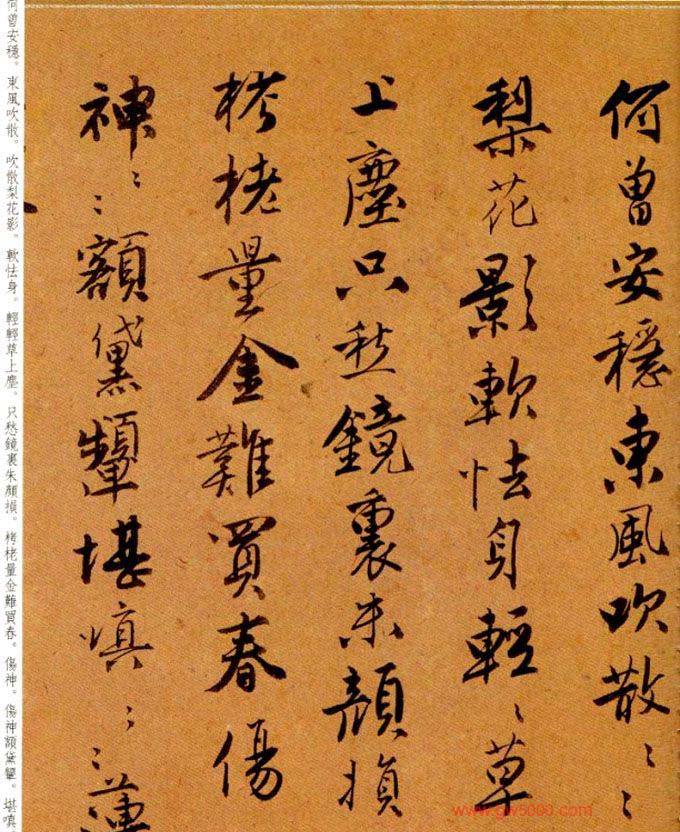 何曾安穩東風吹散〻〻
梨花影軟怯身輕〻草
上塵只愁鏡裏朱顏損
栲栳量金難買春傷
神〻〻額黛顰堪嗔〻〻
何曾安穩。東風吹散。吹散梨花影。軟怯身。輕輕草上塵。只愁鏡裏朱顏損。栲栳量金難買春。傷神。傷神額黛顰。堪嗔